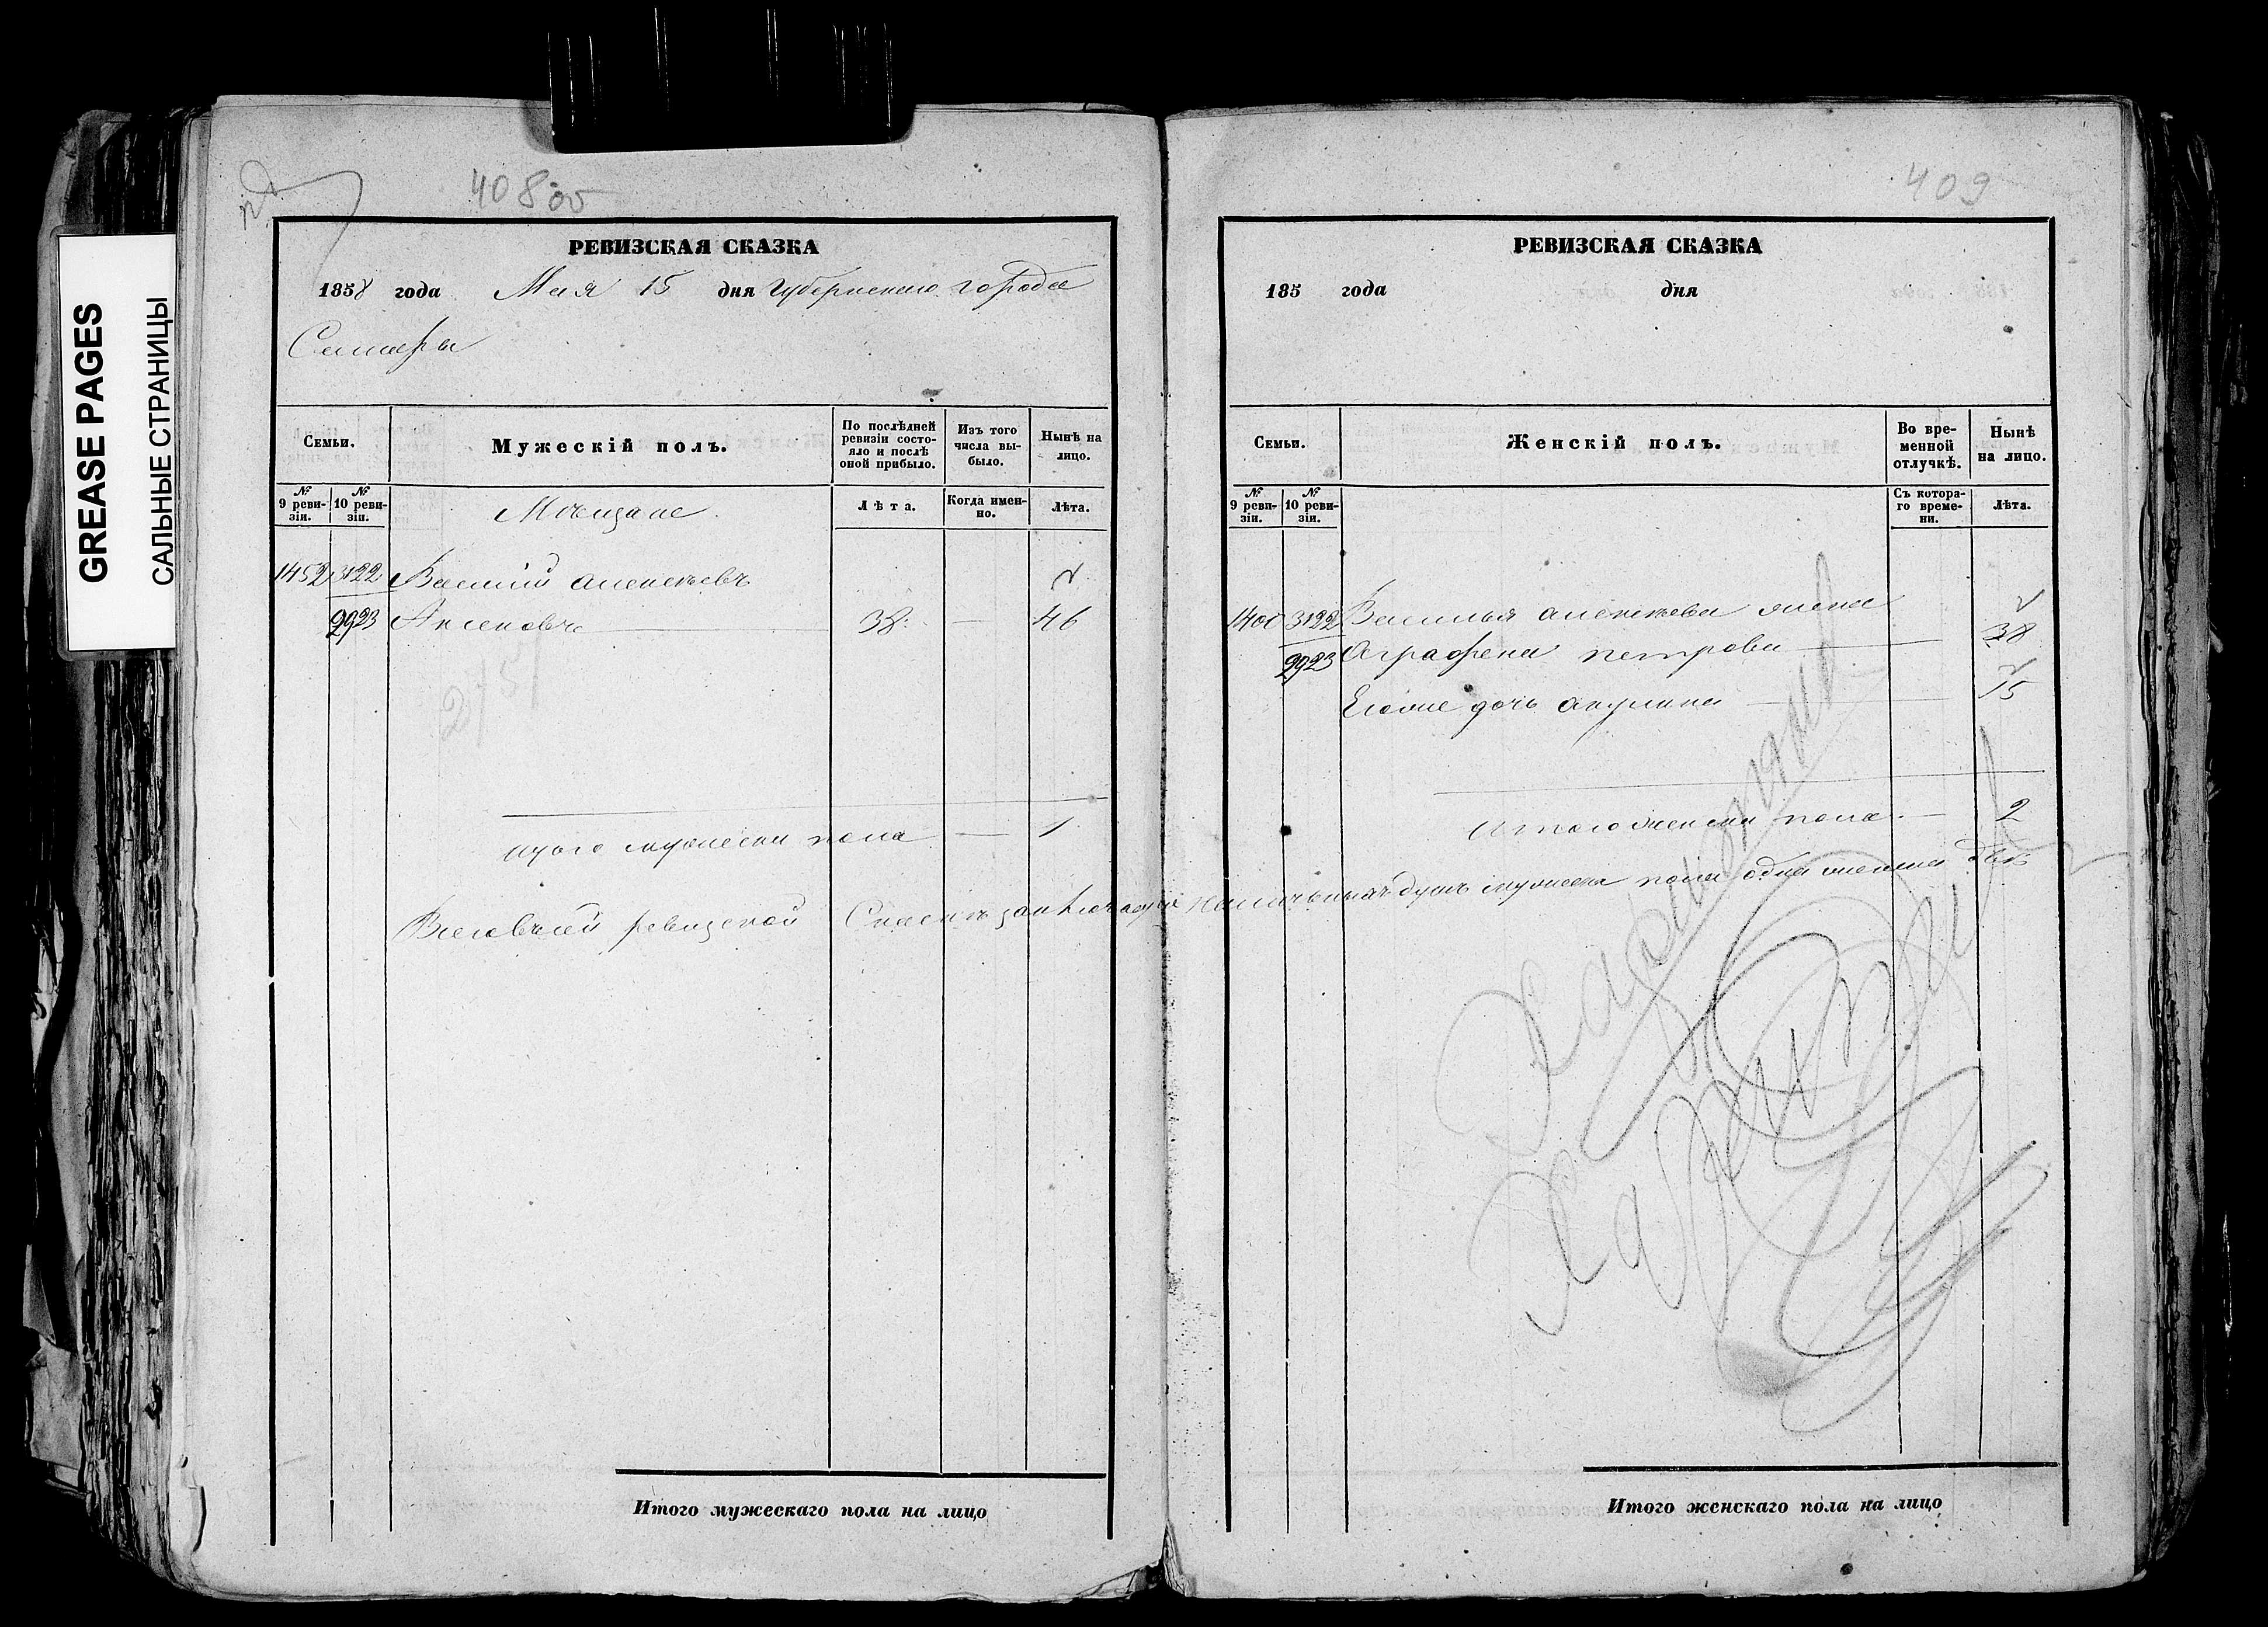 GREASE PAGES
САЛЬНЫЕ СТРАНИЦЫ
408 об
РЕВИЗСКАЯ СКАЗКА
1858 года Мая 15 дня Губернскаго города
Самары
Семьи.
Мужескій полъ.
По послѣдней ревизіи состояло и послѣ оной прибыло.
Изъ того числа выбыло.
Нынѣ на лицо.
№ 9 ревизіи.
№ 10 ревизіи.
Мѣщане
Лѣта.
Когда именно.
Лѣта.
1452 3122 Василий Алексѣевъ
2923 Аксеновъ 38. — 46
итого мужеска пола — 1
Всего въ сей ревизской Сказкѣ заключается наличныхъ душъ мужеска пола одна женска двѣ
Итого мужескаго пола на лицо
409
РЕВИЗСКАЯ СКАЗКА
185 года дня
Семьи.
Женскій полъ.
Во временной отлучкѣ.
Нынѣ на лицо.
№ 9 ревизіи.
№ 10 ревизіи.
Съ котораго времени.
Лѣта.
1400 3122 Василья Алексѣева жена
2923 Аграфена петрова — 38
Егоже дочь акулина — 15
Итого женска пола — 2
Итого женскаго пола на лицо